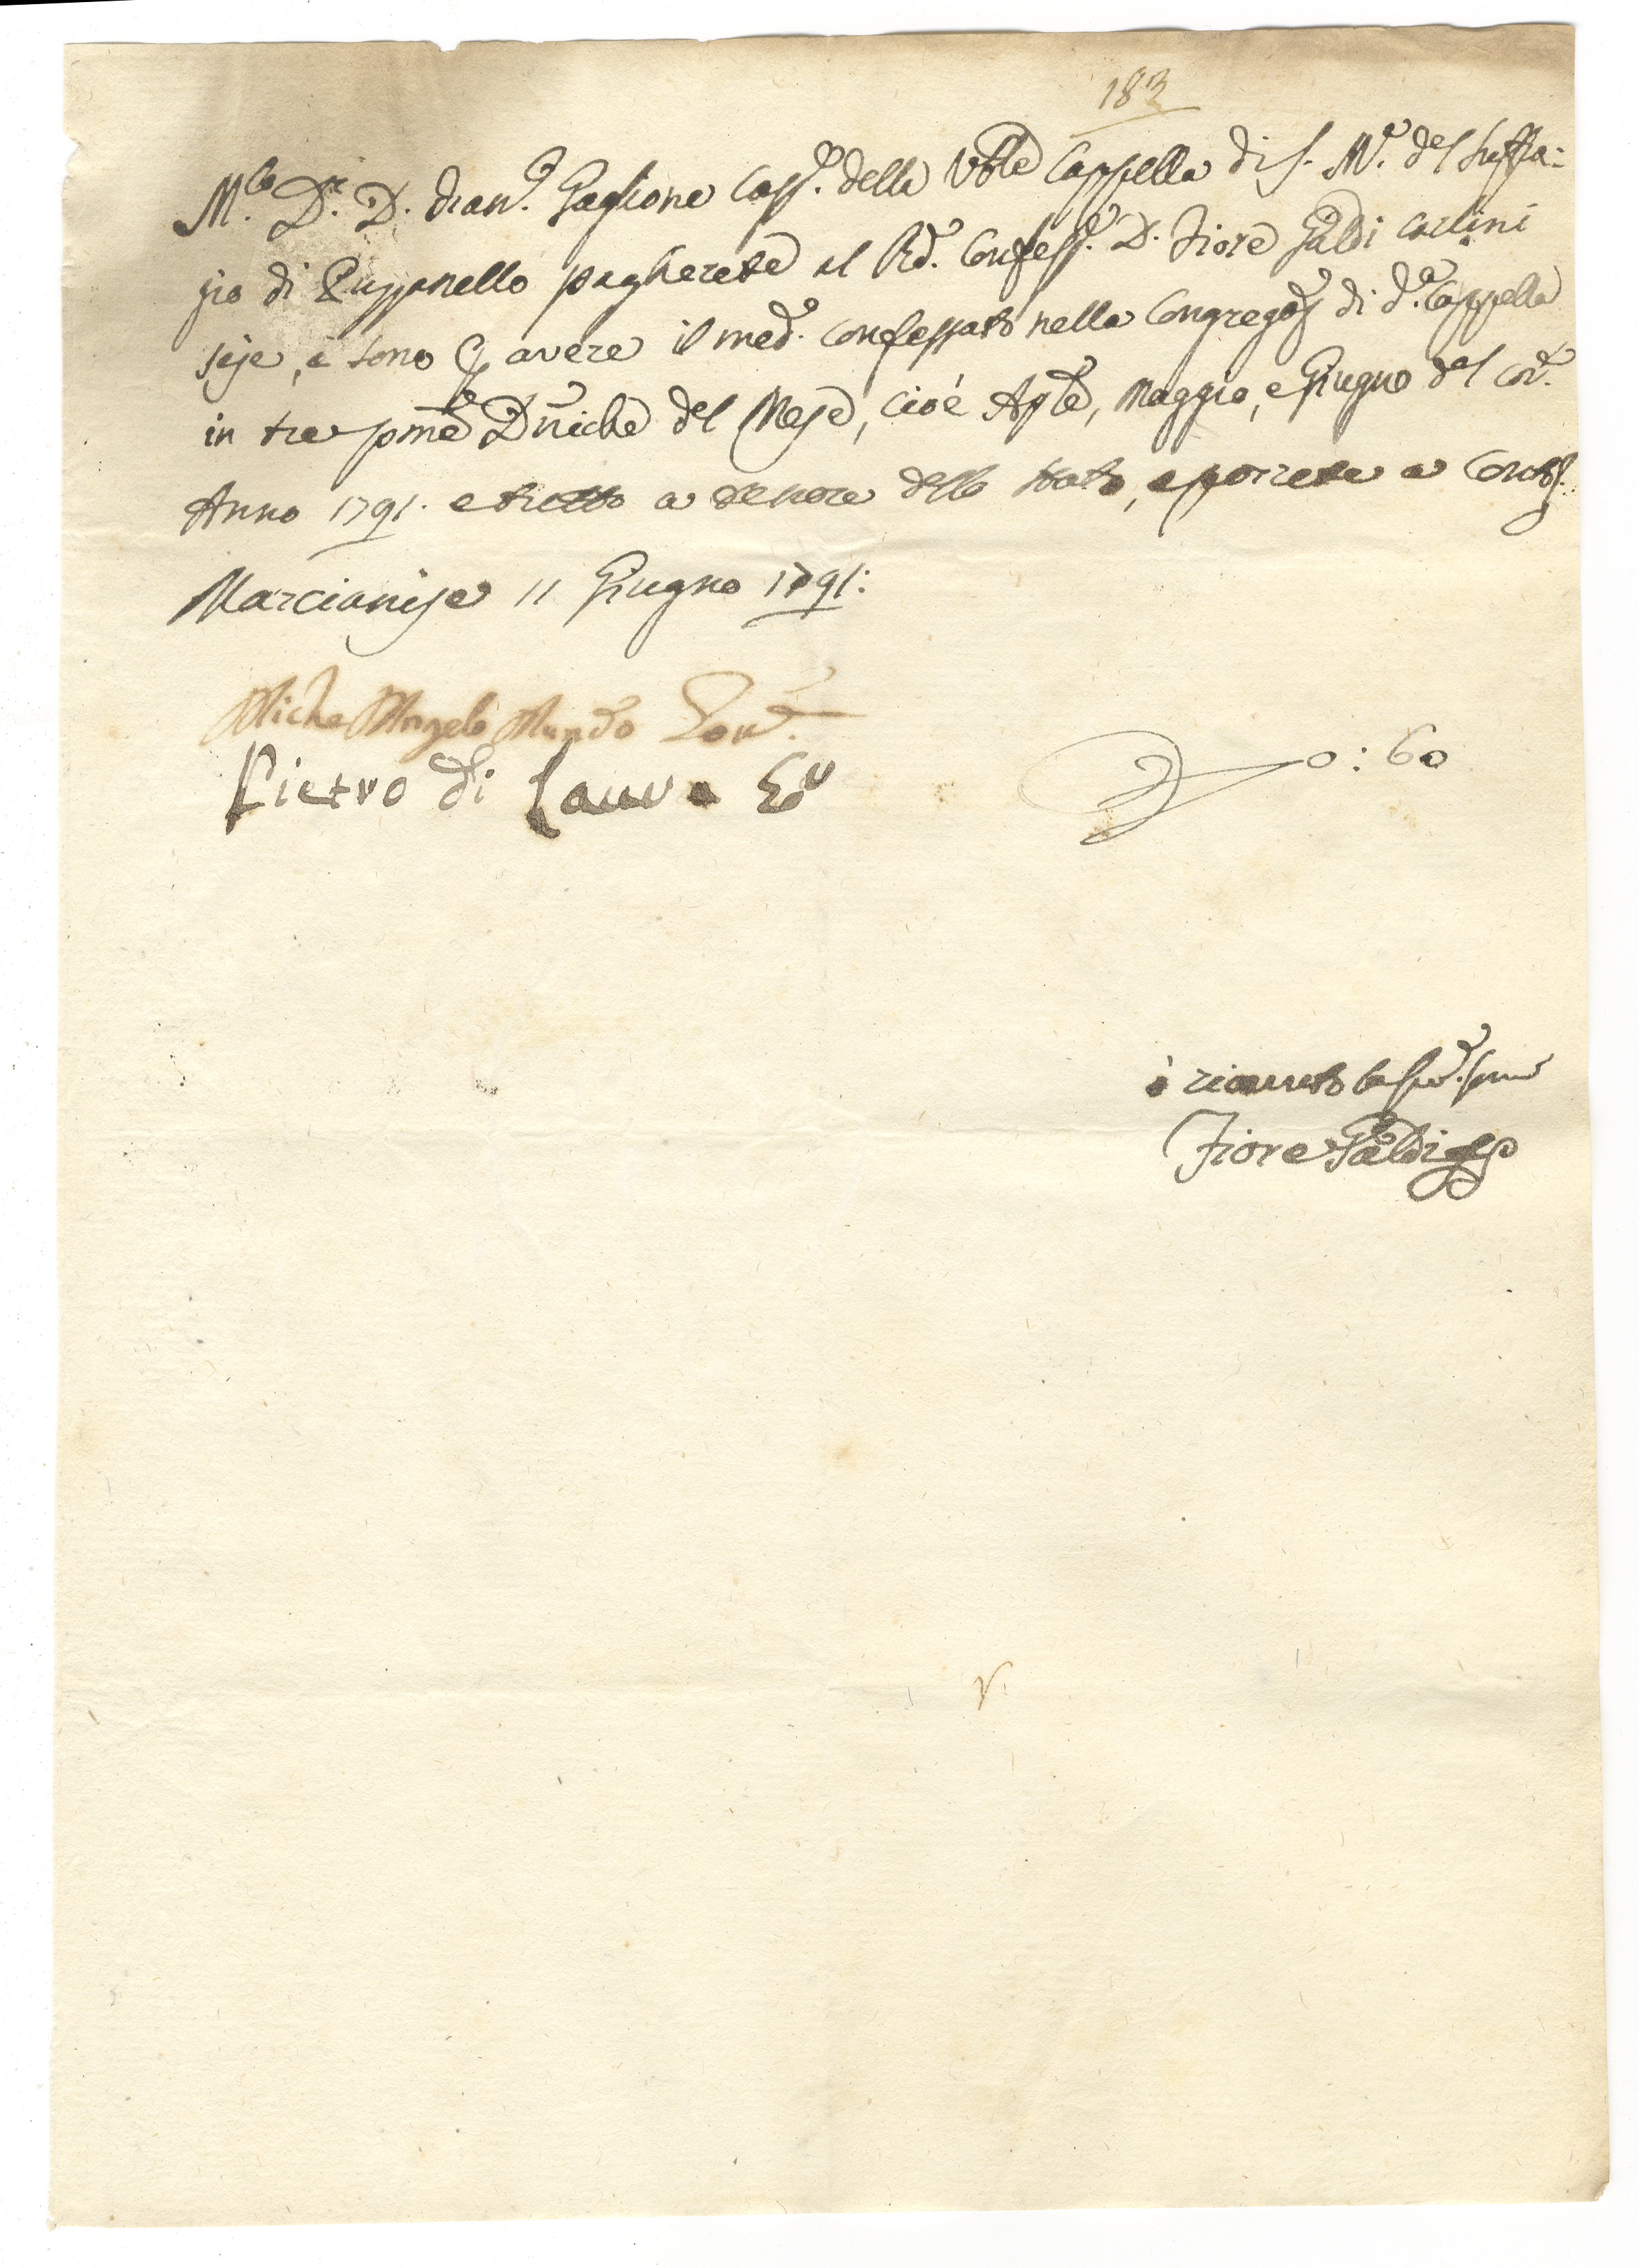 183
M.co D.r D. Gian.o Gaglione Cass.o della Vble Cappella di S. M.a del Suffra=
gio di Puzzanello pagherete al Rd.o Confess.e D. Fiore Galdi carlini
seje, e sono p avere il med.o confessato nella Congregaz.e di d.a Cappella
in tre pme Dniche del Mese, cioè Aple, Maggio, e Giugno del cor.te
Anno 1791. e tutto a tenore dello stato, e ponerete a Conto.
Marcianise 11 Giugno 1791:
Miche Angelo Mundo Gov.re
Pietro di Lauro Go.v
D 0:60
ò ricevuto la sud.a somma
Fiore Galdi